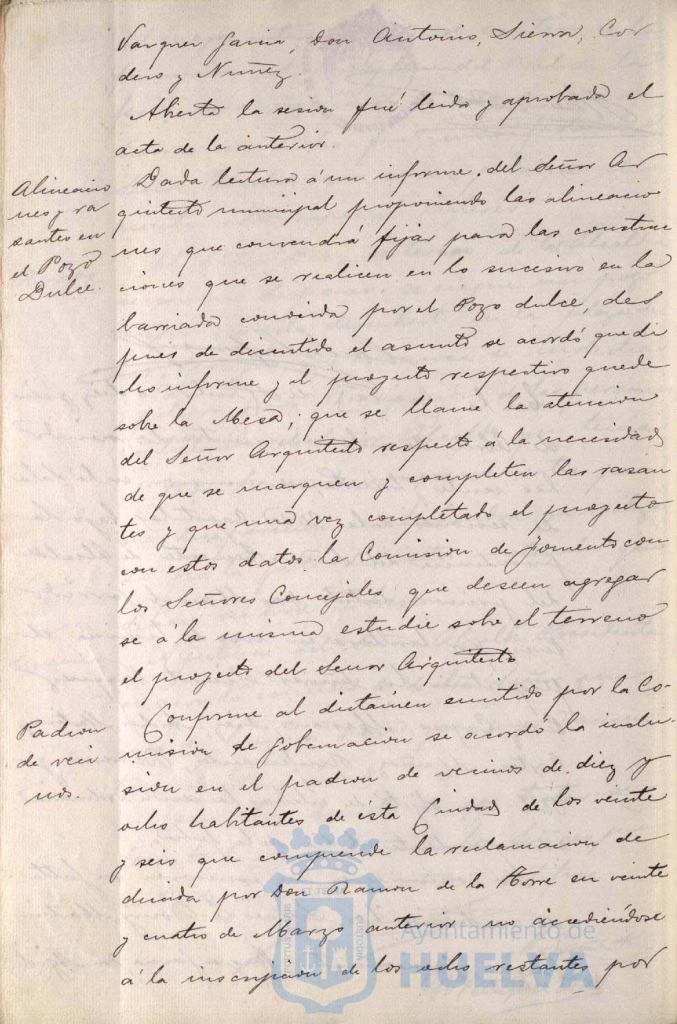 Vazquez Garcia, Don Antonio, Sierra, Cor
dero y Nuñez.
Abierta la sesion fué leida y aprobada el
acta de la anterior.
Alineacio
nes y ra
santes en
el Pozo
Dulce.
Dada lectura á un informe del Señor Ar
quitecto municipal proponiendo las alineacio
nes que convendrá fijar para las construc
ciones que se realicen en lo sucesivo en la
barriada conocida por el Pozo dulce, des
pues de discutido el asunto se acordó que di
cho informe y el proyecto respectivo quede
sobre la Mesa; que se llame la atencion
del Señor Arquitecto respecto á la necesidad
de que se marquen y completen las rasan
tes y que una vez completado el proyecto
con estos datos la Comision de Fomento con
los Señores Concejales que deseen agregar
se á la misma estudie sobre el terreno
el proyecto del Señor Arquitecto
Padron
de veci
nos.
Conforme al dictámen emitido por la Co-
mision de Gobernacion se acordó la inclu-
sion en el padron de vecinos de diez y
ocho habitantes de ésta Ciudad de los veinte
y seis que comprende la reclamacion de
ducida por Don Ramon de la Torre en veinte
y cuatro de Marzo anterior no accediéndose
á la inscripcion de los ocho restantes por
Ayuntamiento de
HUELVA